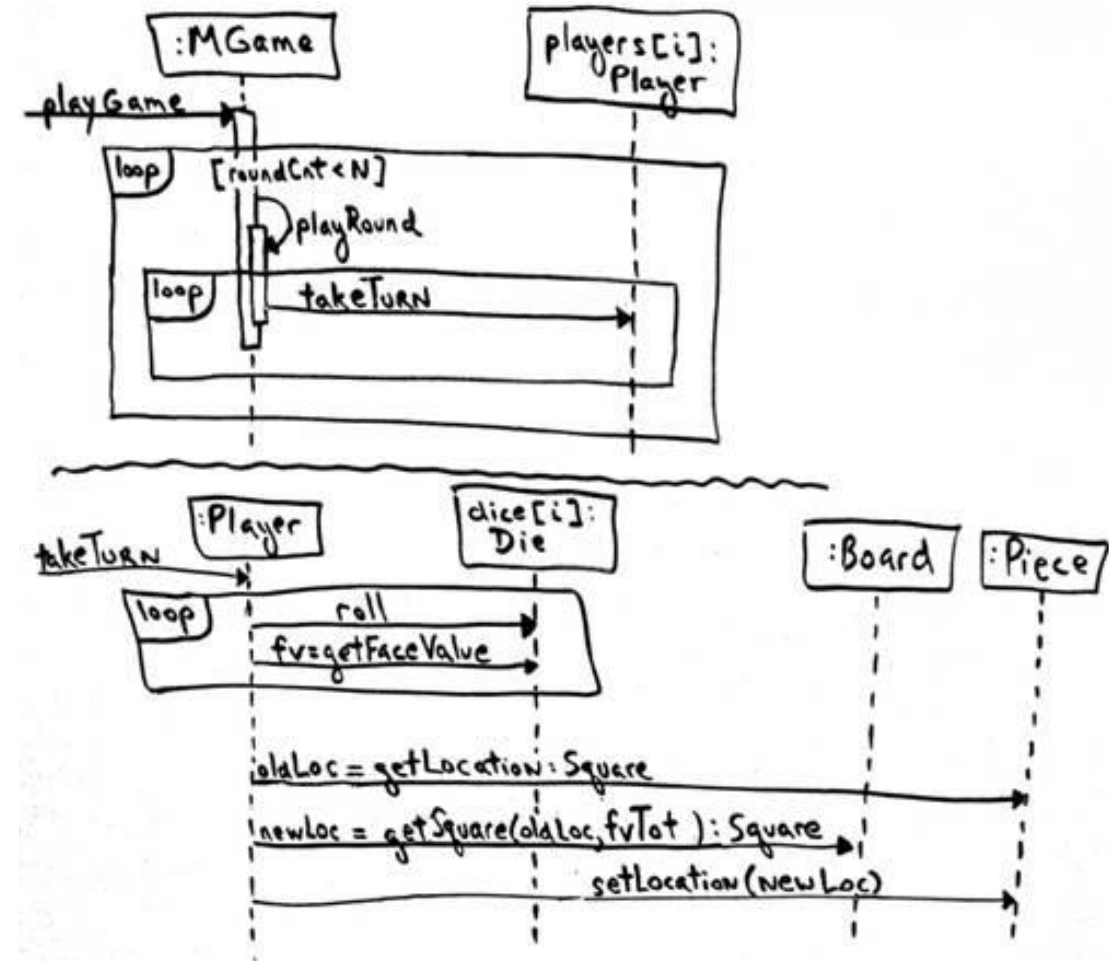 :MGame
players[i]:
Player
playGame
loop
[roundCnt < N]
playRound
loop
takeTURN
:Player
dice[i]:
Die
:Board
:Piece
takeTURN
loop
roll
fv=getFaceValue
oldLoc = getLocation: Square
newLoc = getSquare(oldLoc, fvTot ) : Square
setLocation (NewLoc)